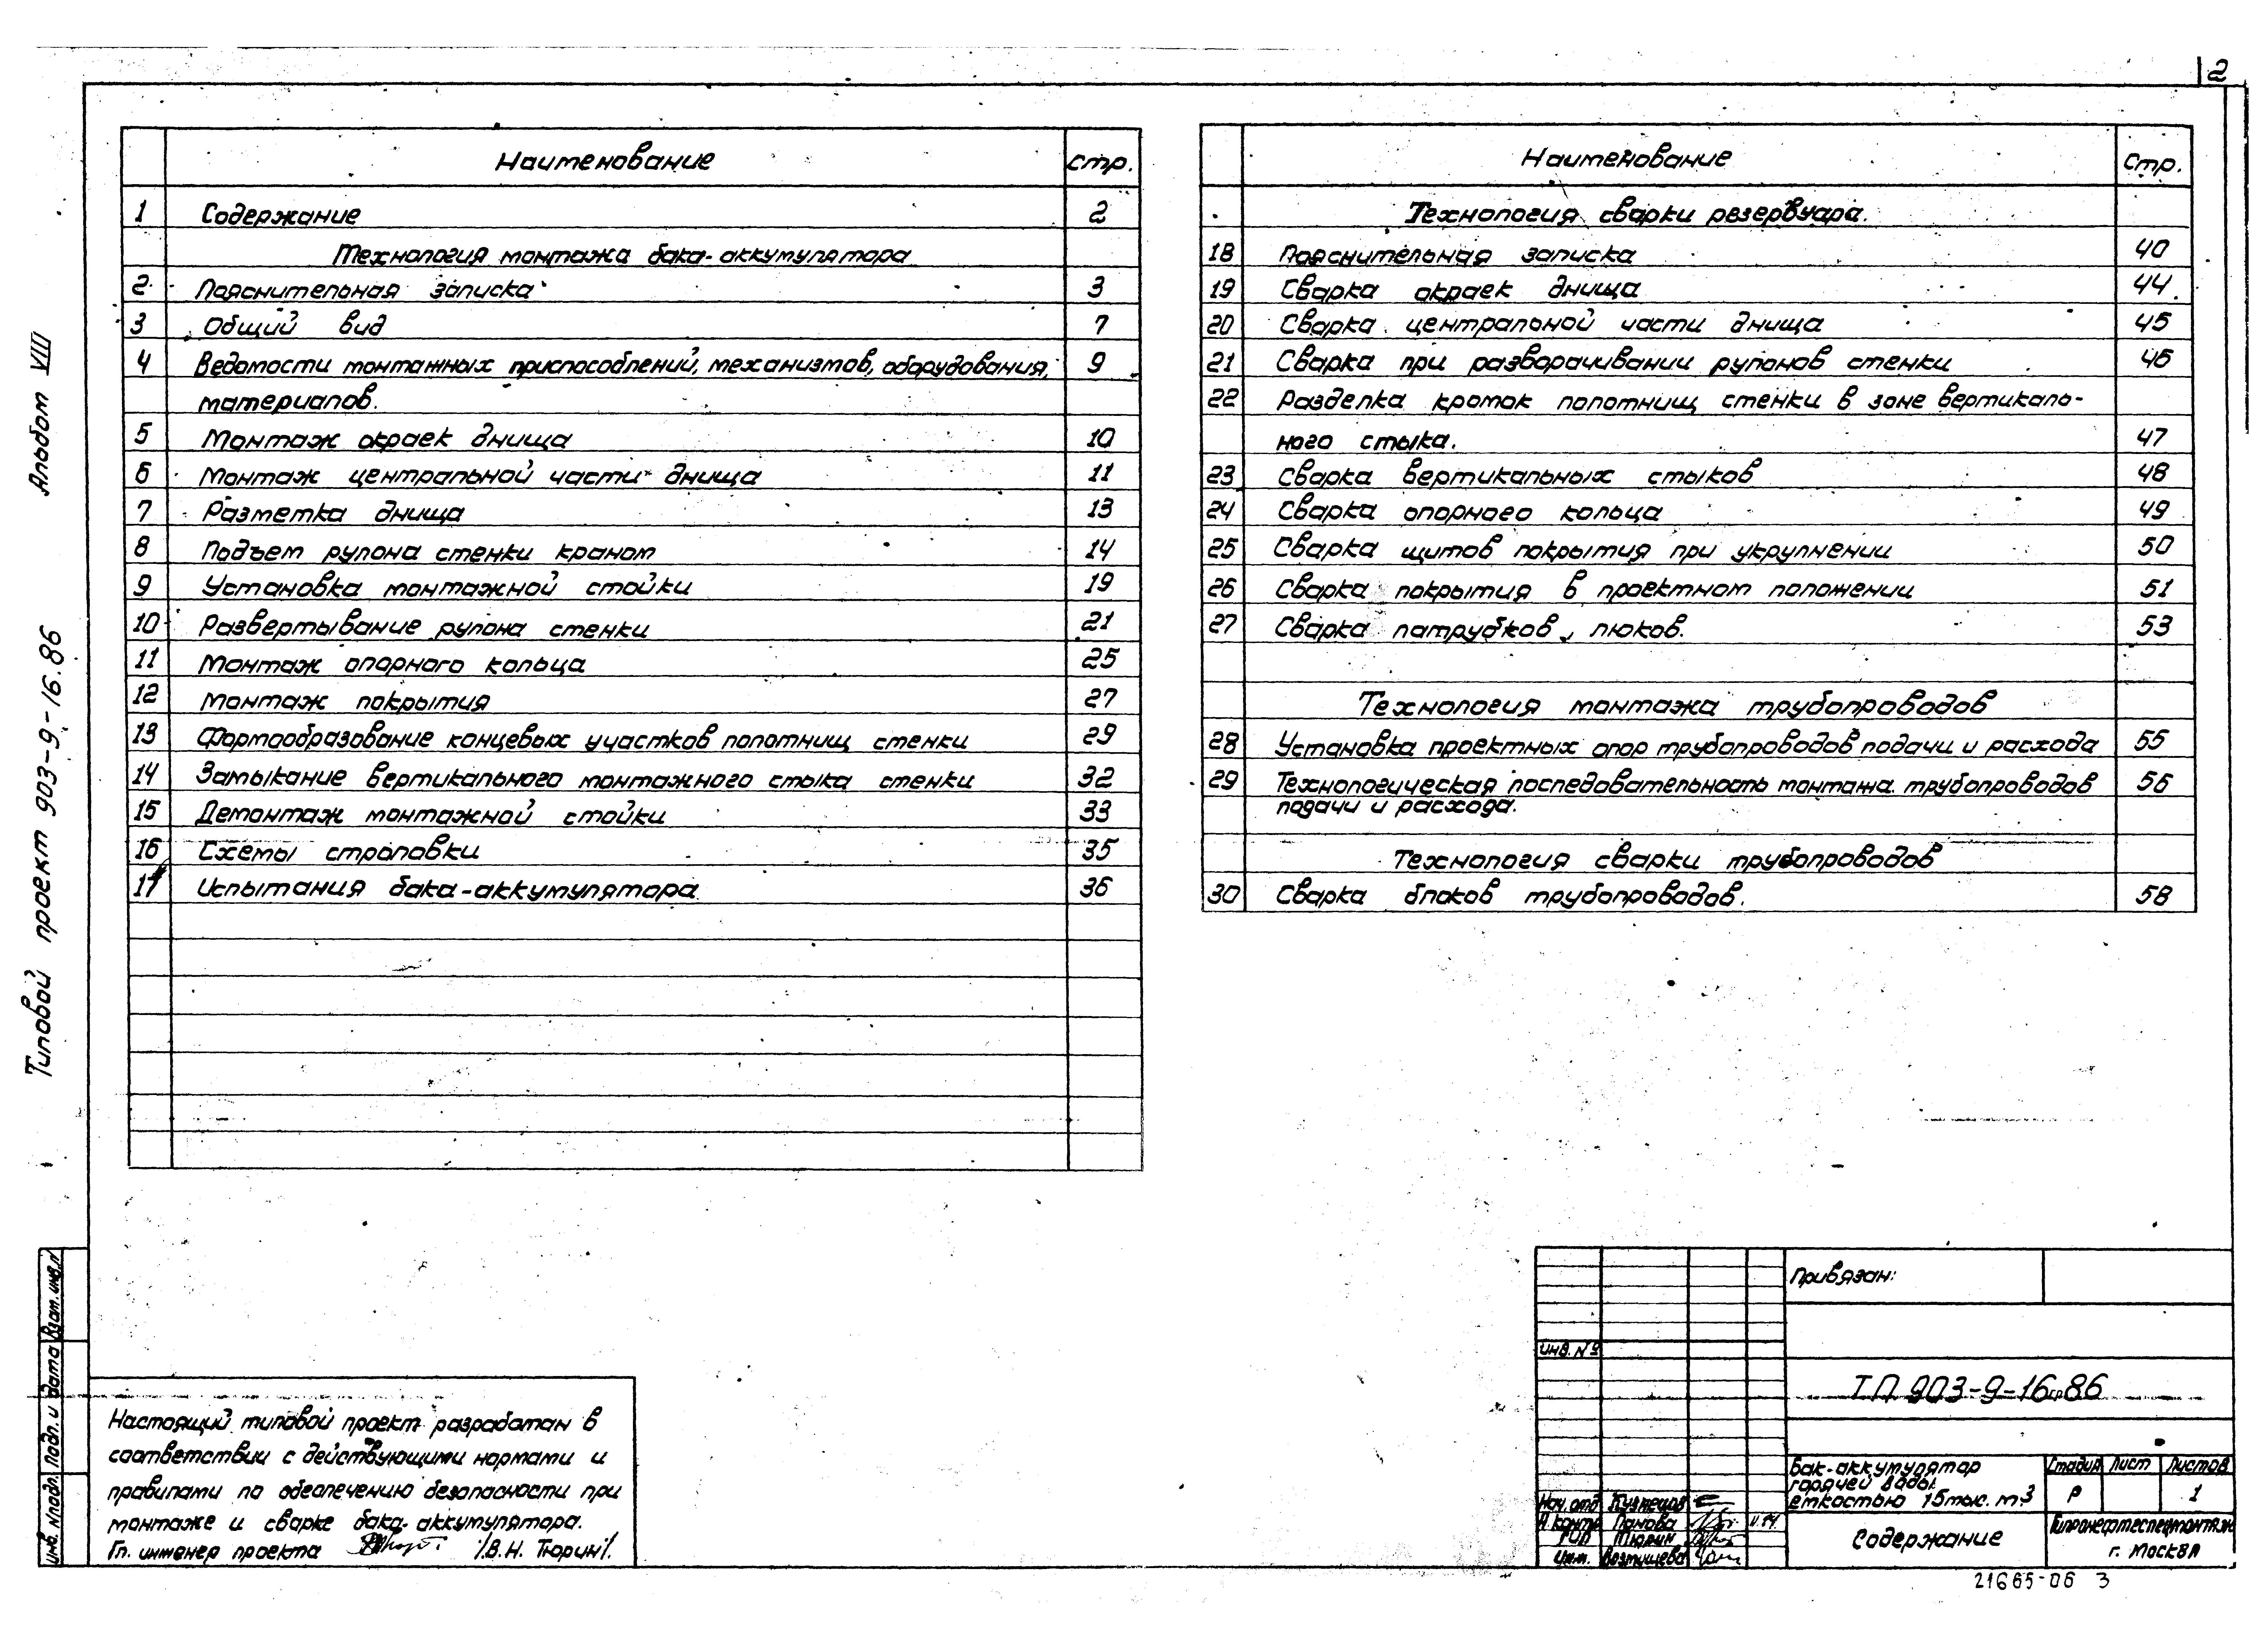 2
Альбом VIII
Типовой проект 903-9-16.86
Наименование Стр.
1 Содержание 2
Технология монтажа бака-аккумулятора
2 Пояснительная записка 3
3 Общий вид 7
4 Ведомости монтажных приспособлений, механизмов, оборудования, 9
материалов.
5 Монтаж окраек днища 10
6 Монтаж центральной части днища 11
7 Разметка днища 13
8 Подъем рулона стенки краном 14
9 Установка монтажной стойки 19
10 Развертывание рулона стенки 21
11 Монтаж опорного кольца 25
12 Монтаж покрытия 27
13 Формообразование концевых участков полотнищ стенки 29
14 Замыкание вертикального монтажного стыка стенки 32
15 Демонтаж монтажной стойки 33
16 Схемы строповки 35
17 Испытания бака-аккумулятора 36
Наименование Стр.
Технология сварки резервуара.
18 Пояснительная записка 40
19 Сварка окраек днища 44
20 Сварка центральной части днища 45
21 Сварка при разворачивании рулонов стенки 46
22 Разделка кромок полотнищ стенки в зоне вертикаль-
ного стыка. 47
23 Сварка вертикальных стыков 48
24 Сварка опорного кольца 49
25 Сварка щитов покрытия при укрупнении 50
26 Сварка покрытия в проектном положении 51
27 Сварка патрубков, люков. 53
Технология монтажа трубопроводов
28 Установка проектных опор трубопроводов подачи и расхода 55
29 Технологическая последовательность монтажа трубопроводов 56
подачи и расхода.
Технология сварки трубопроводов
30 Сварка блоков трубопроводов. 58
Инв. № подл. Подп. и дата Взам. инв. №
Настоящий типовой проект разработан в
соответствии с действующими нормами и
правилами по обеспечению безопасности при
монтаже и сварке бака-аккумулятора.
Гл. инженер проекта /В.Н. Тюрин/.
Привязан:
Инв. №
ТП 903-9-16.86
Бак-аккумулятор
горячей воды
емкостью 15 тыс. м3
Стадия Лист Листов
Р 1
Нач. отд. Кузнецов
Н. контр. Панова
ГИП Тюрин
Инж. Возмищева
Содержание
Гипронефтеспецмонтаж
г. Москва
21665-06 3